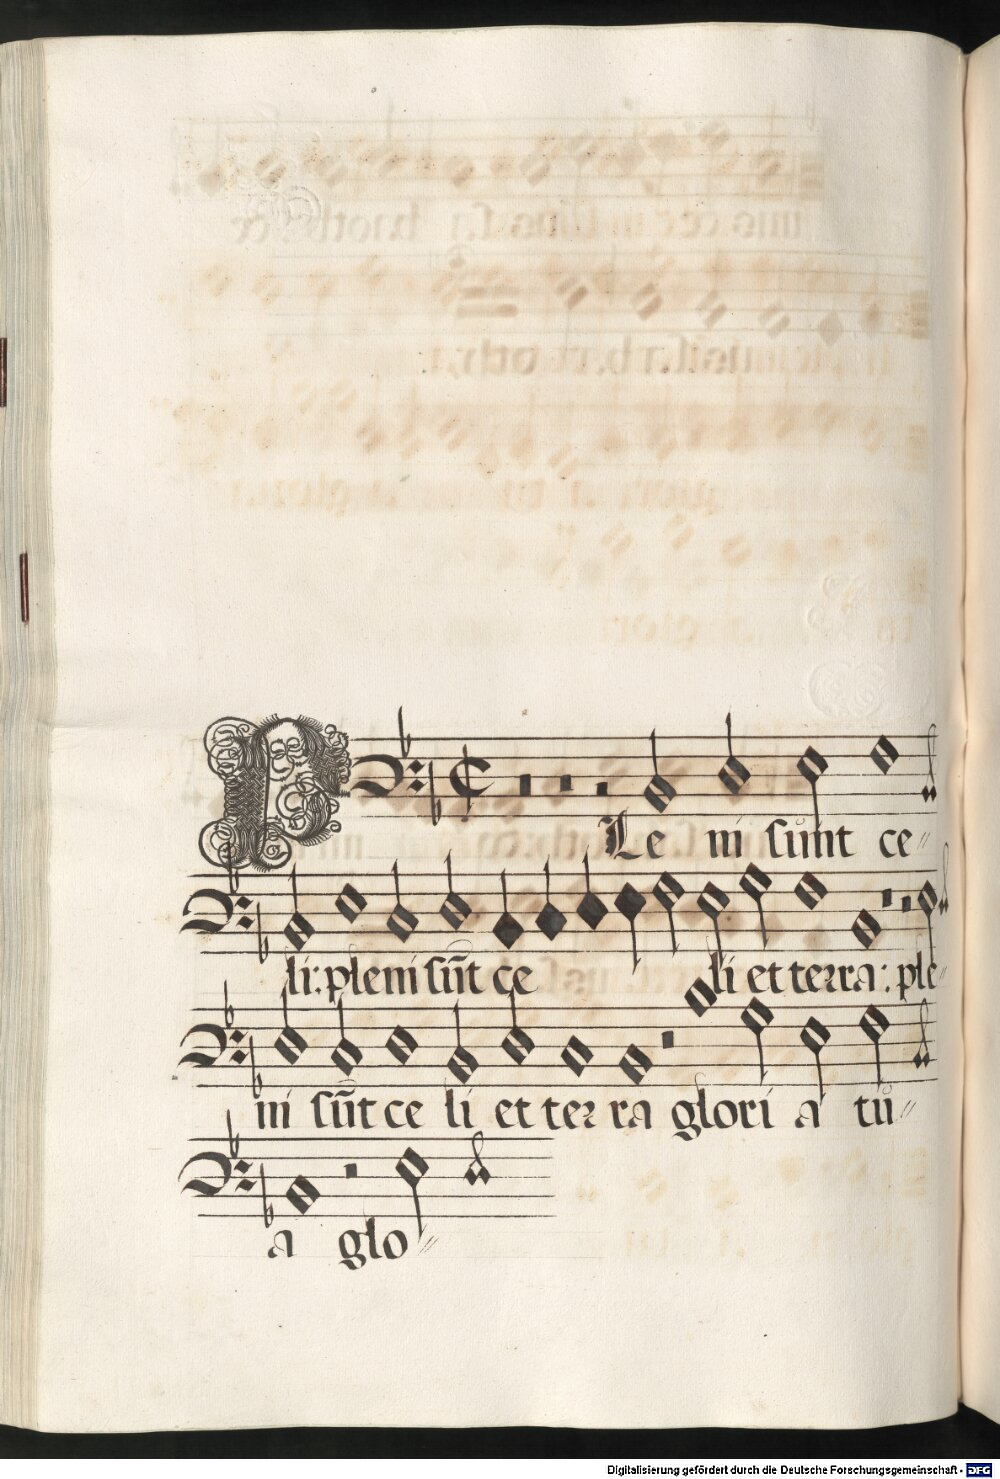 PLe ni sunt ce
li: pleni sūt ce li et terra: ple
ni sūt ce li et ter ra glori a tu
a glo
Digitalisierung gefördert durch die Deutsche Forschungsgemeinschaft - DFG